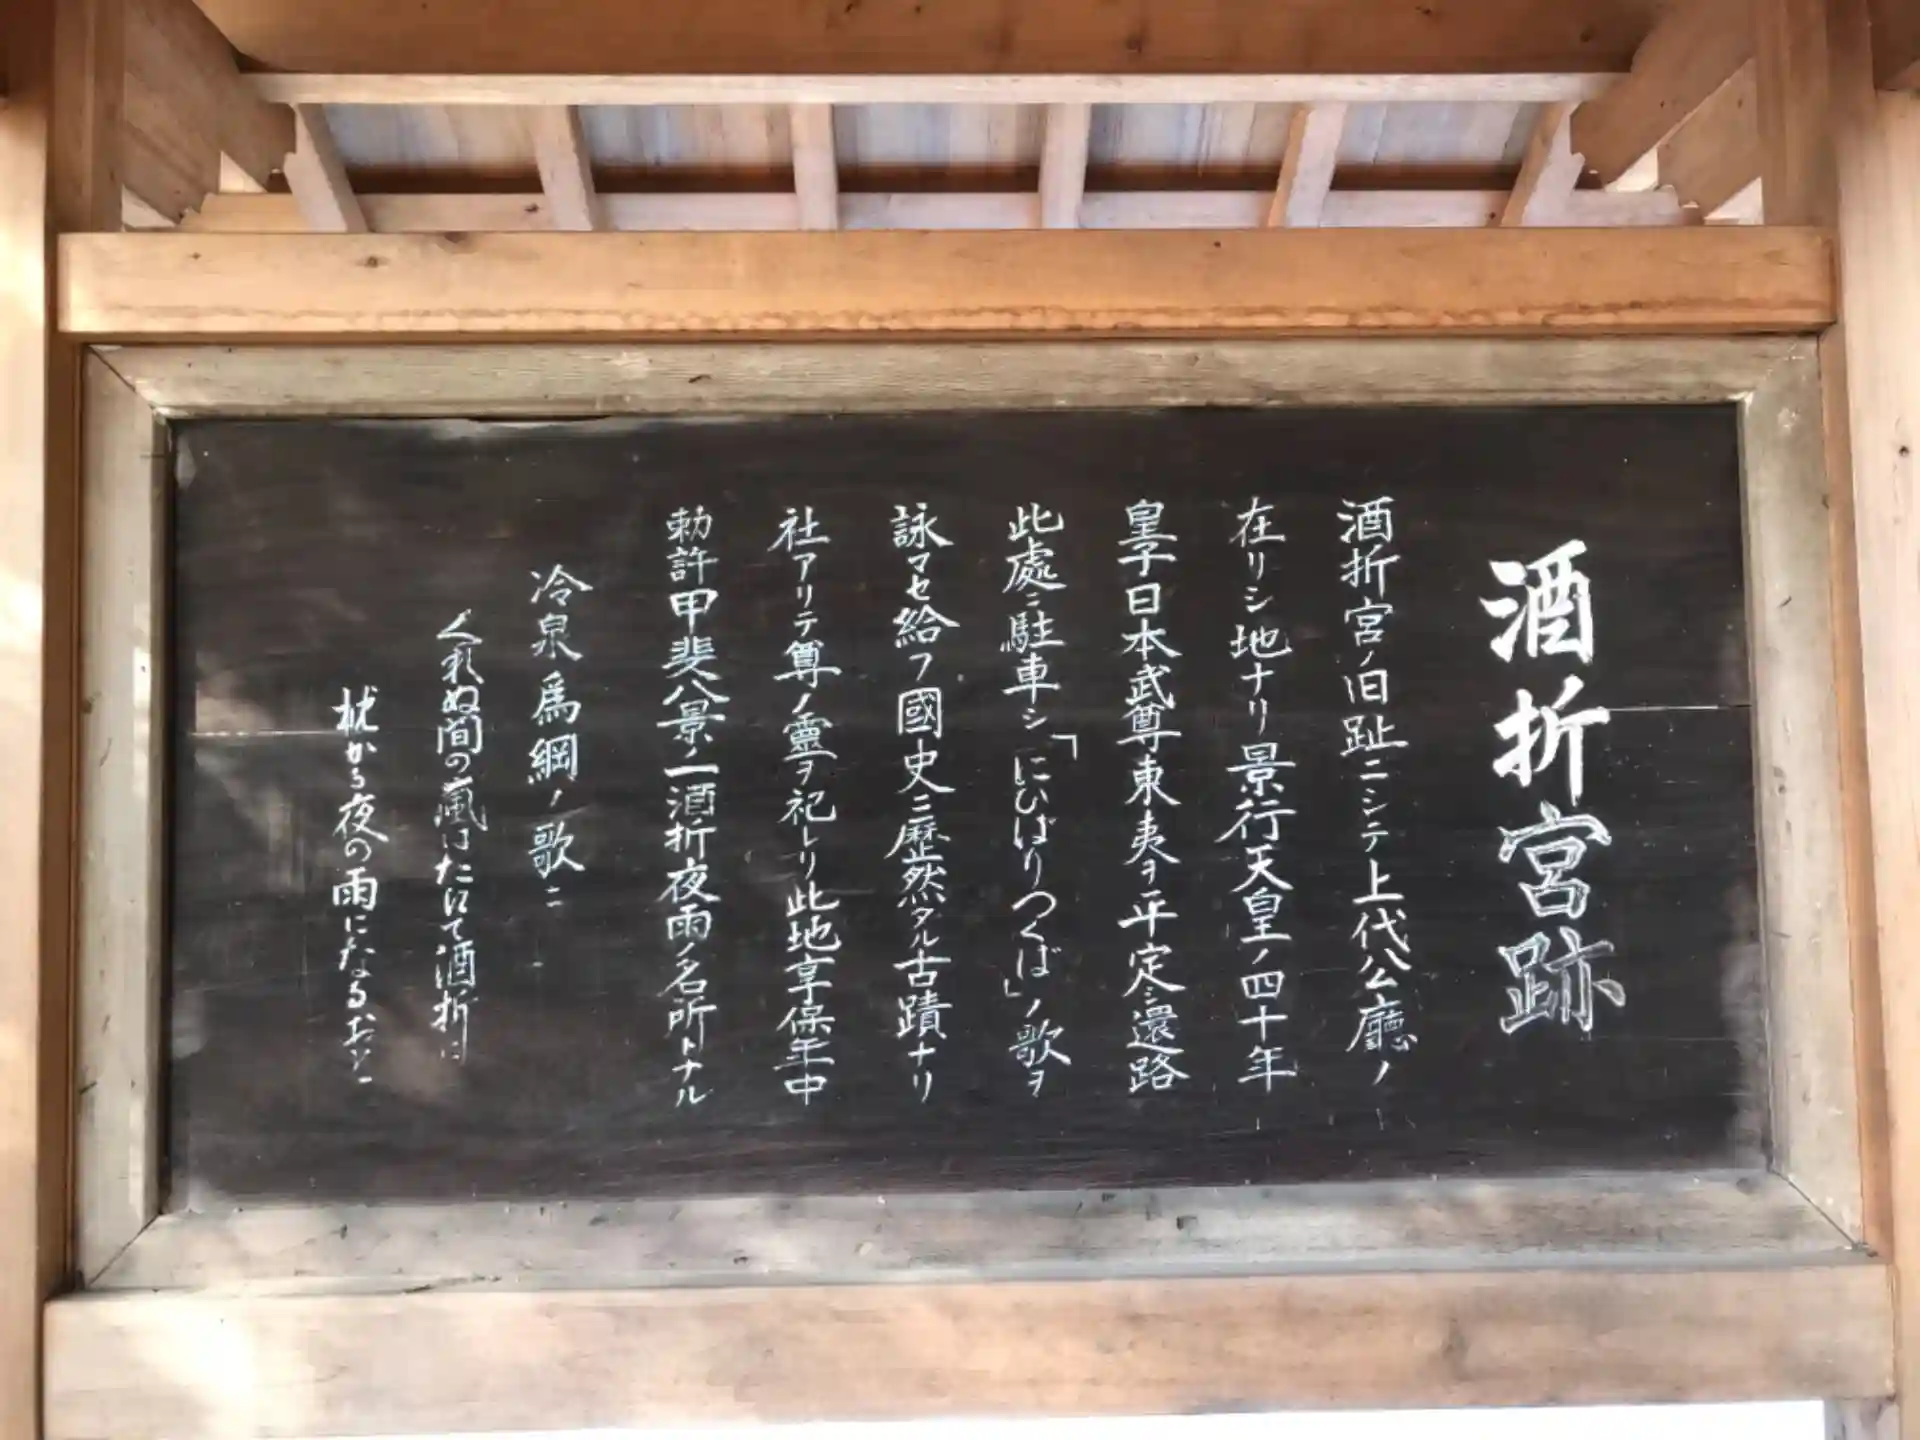 酒折宮跡
酒折宮ノ旧趾ニシテ上代公廳ノ
在リシ地ナリ景行天皇ノ四十年
皇子日本武尊東夷ヲ平定シ還路
此處ニ駐車シ「にひばりつくば」ノ歌ヲ
詠マセ給フ國史ニ歴然タル古蹟ナリ
社アリテ尊ノ靈ヲ祀レリ此地享保年中
勅許甲斐八景ノ一酒折夜雨ノ名所トナル
冷泉為綱ノ歌ニ
くれぬ間の嵐はたにて酒折に
枕かる夜の雨になるおと